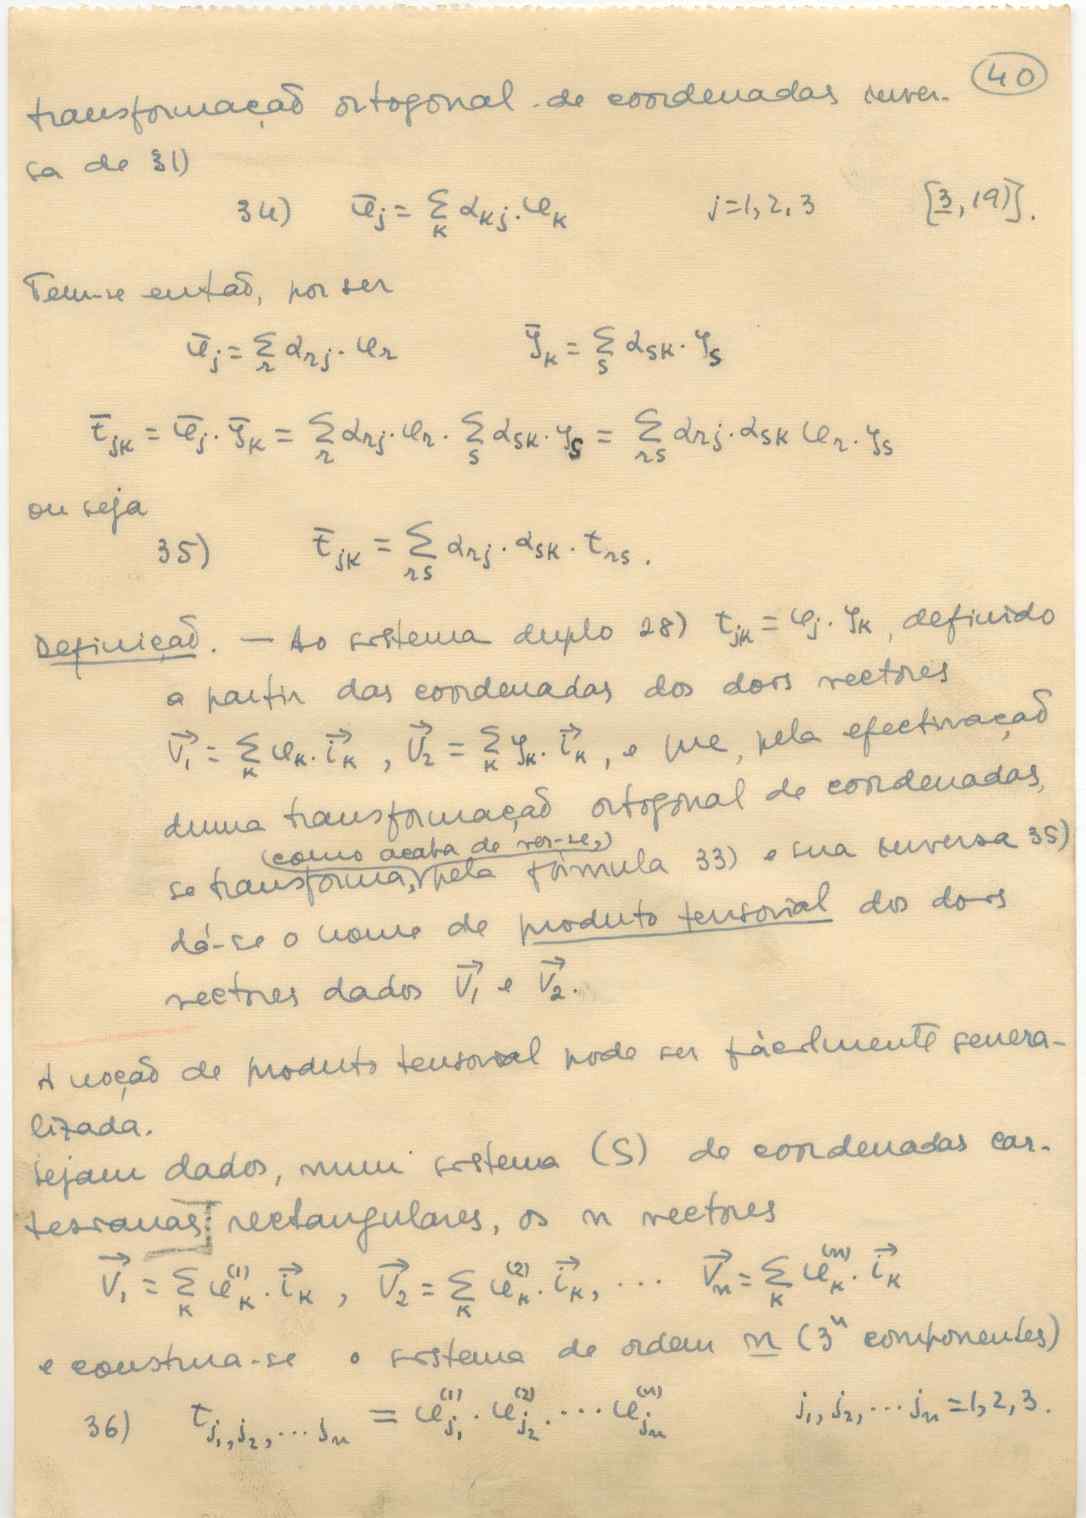 40
transformação ortogonal de coordenadas inver-
sa de 31)
34) φ̄_j = Σ_k α_kj · φ_k j=1,2,3 [3, 19)].
Tem-se então, por ser
φ̄_j = Σ_r α_rj · φ_r ψ̄_k = Σ_s α_sk · ψ_s
t̄_jk = φ̄_j · ψ̄_k = Σ_r α_rj · φ_r · Σ_s α_sk · ψ_s = Σ_rs α_rj · α_sk φ_r · ψ_s
ou seja
35) t̄_jk = Σ_rs α_rj · α_sk · t_rs .
Definição. — Ao sistema duplo 28) t_jk = φ_j · ψ_k, definido
a partir das coordenadas dos dois vectores
V⃗_1 = Σ_k φ_k · i⃗_k , V⃗_2 = Σ_k ψ_k · i⃗_k , e que, pela efectivação
duma transformação ortogonal de coordenadas,
(como acaba de ver-se,)
se transforma, pela fórmula 33) e sua inversa 35)
dá-se o nome de produto tensorial dos dois
vectores dados V⃗_1 e V⃗_2.
A noção de produto tensorial pode ser fàcilmente genera-
lizada.
Sejam dados, num sistema (S) de coordenadas car-
tesianas rectangulares, os n vectores
V⃗_1 = Σ_k φ_k^(1) · i⃗_k , V⃗_2 = Σ_k φ_k^(2) · i⃗_k, ... V⃗_n = Σ_k φ_k^(n) · i⃗_k
e construa-se o sistema de ordem n (3^n componentes)
36) t_j₁,j₂,...j_n = φ_j₁^(1) · φ_j₂^(2) · ... φ_j_n^(n) j₁, j₂, ... j_n = 1,2,3.